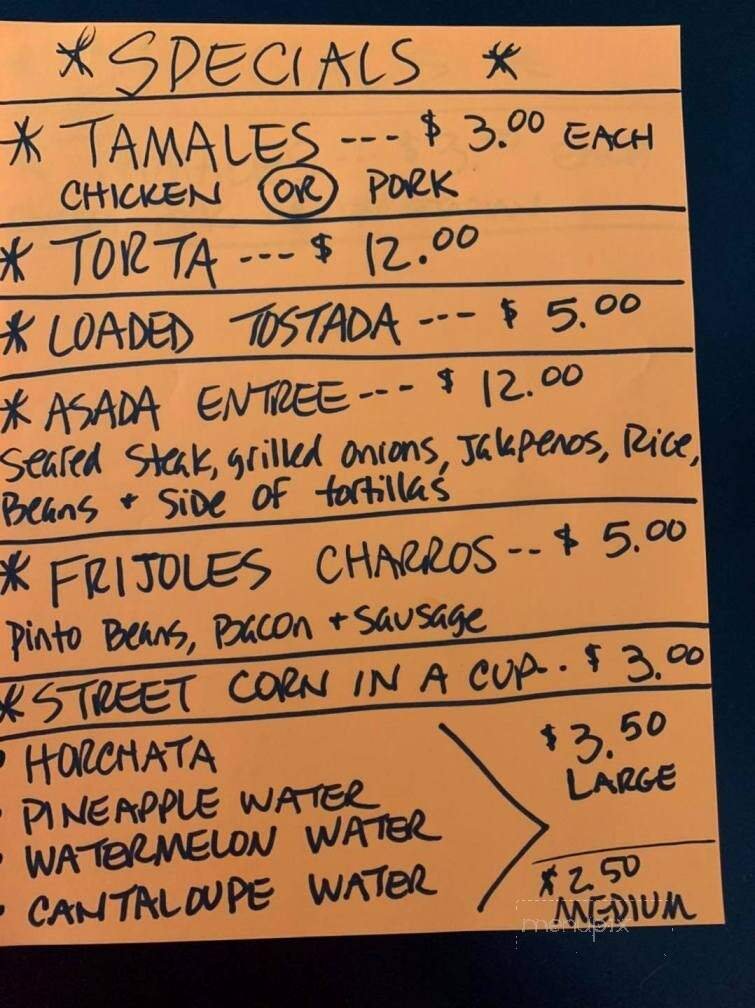 * SPECIALS *
* TAMALES --- $ 3.00 EACH
CHICKEN OR PORK
* TORTA --- $ 12.00
* LOADED TOSTADA --- $ 5.00
* ASADA ENTREE --- $ 12.00
Seared Steak, grilled onions, Jalapenos, Rice,
Beans + side of tortillas
* FRIJOLES CHARROS -- $ 5.00
Pinto Beans, Bacon + Sausage
* STREET CORN IN A CUP. . $ 3.00
• HORCHATA
• PINEAPPLE WATER
• WATERMELON WATER
• CANTALOUPE WATER
$3.50
LARGE
$2.50
MEDIUM
menupix